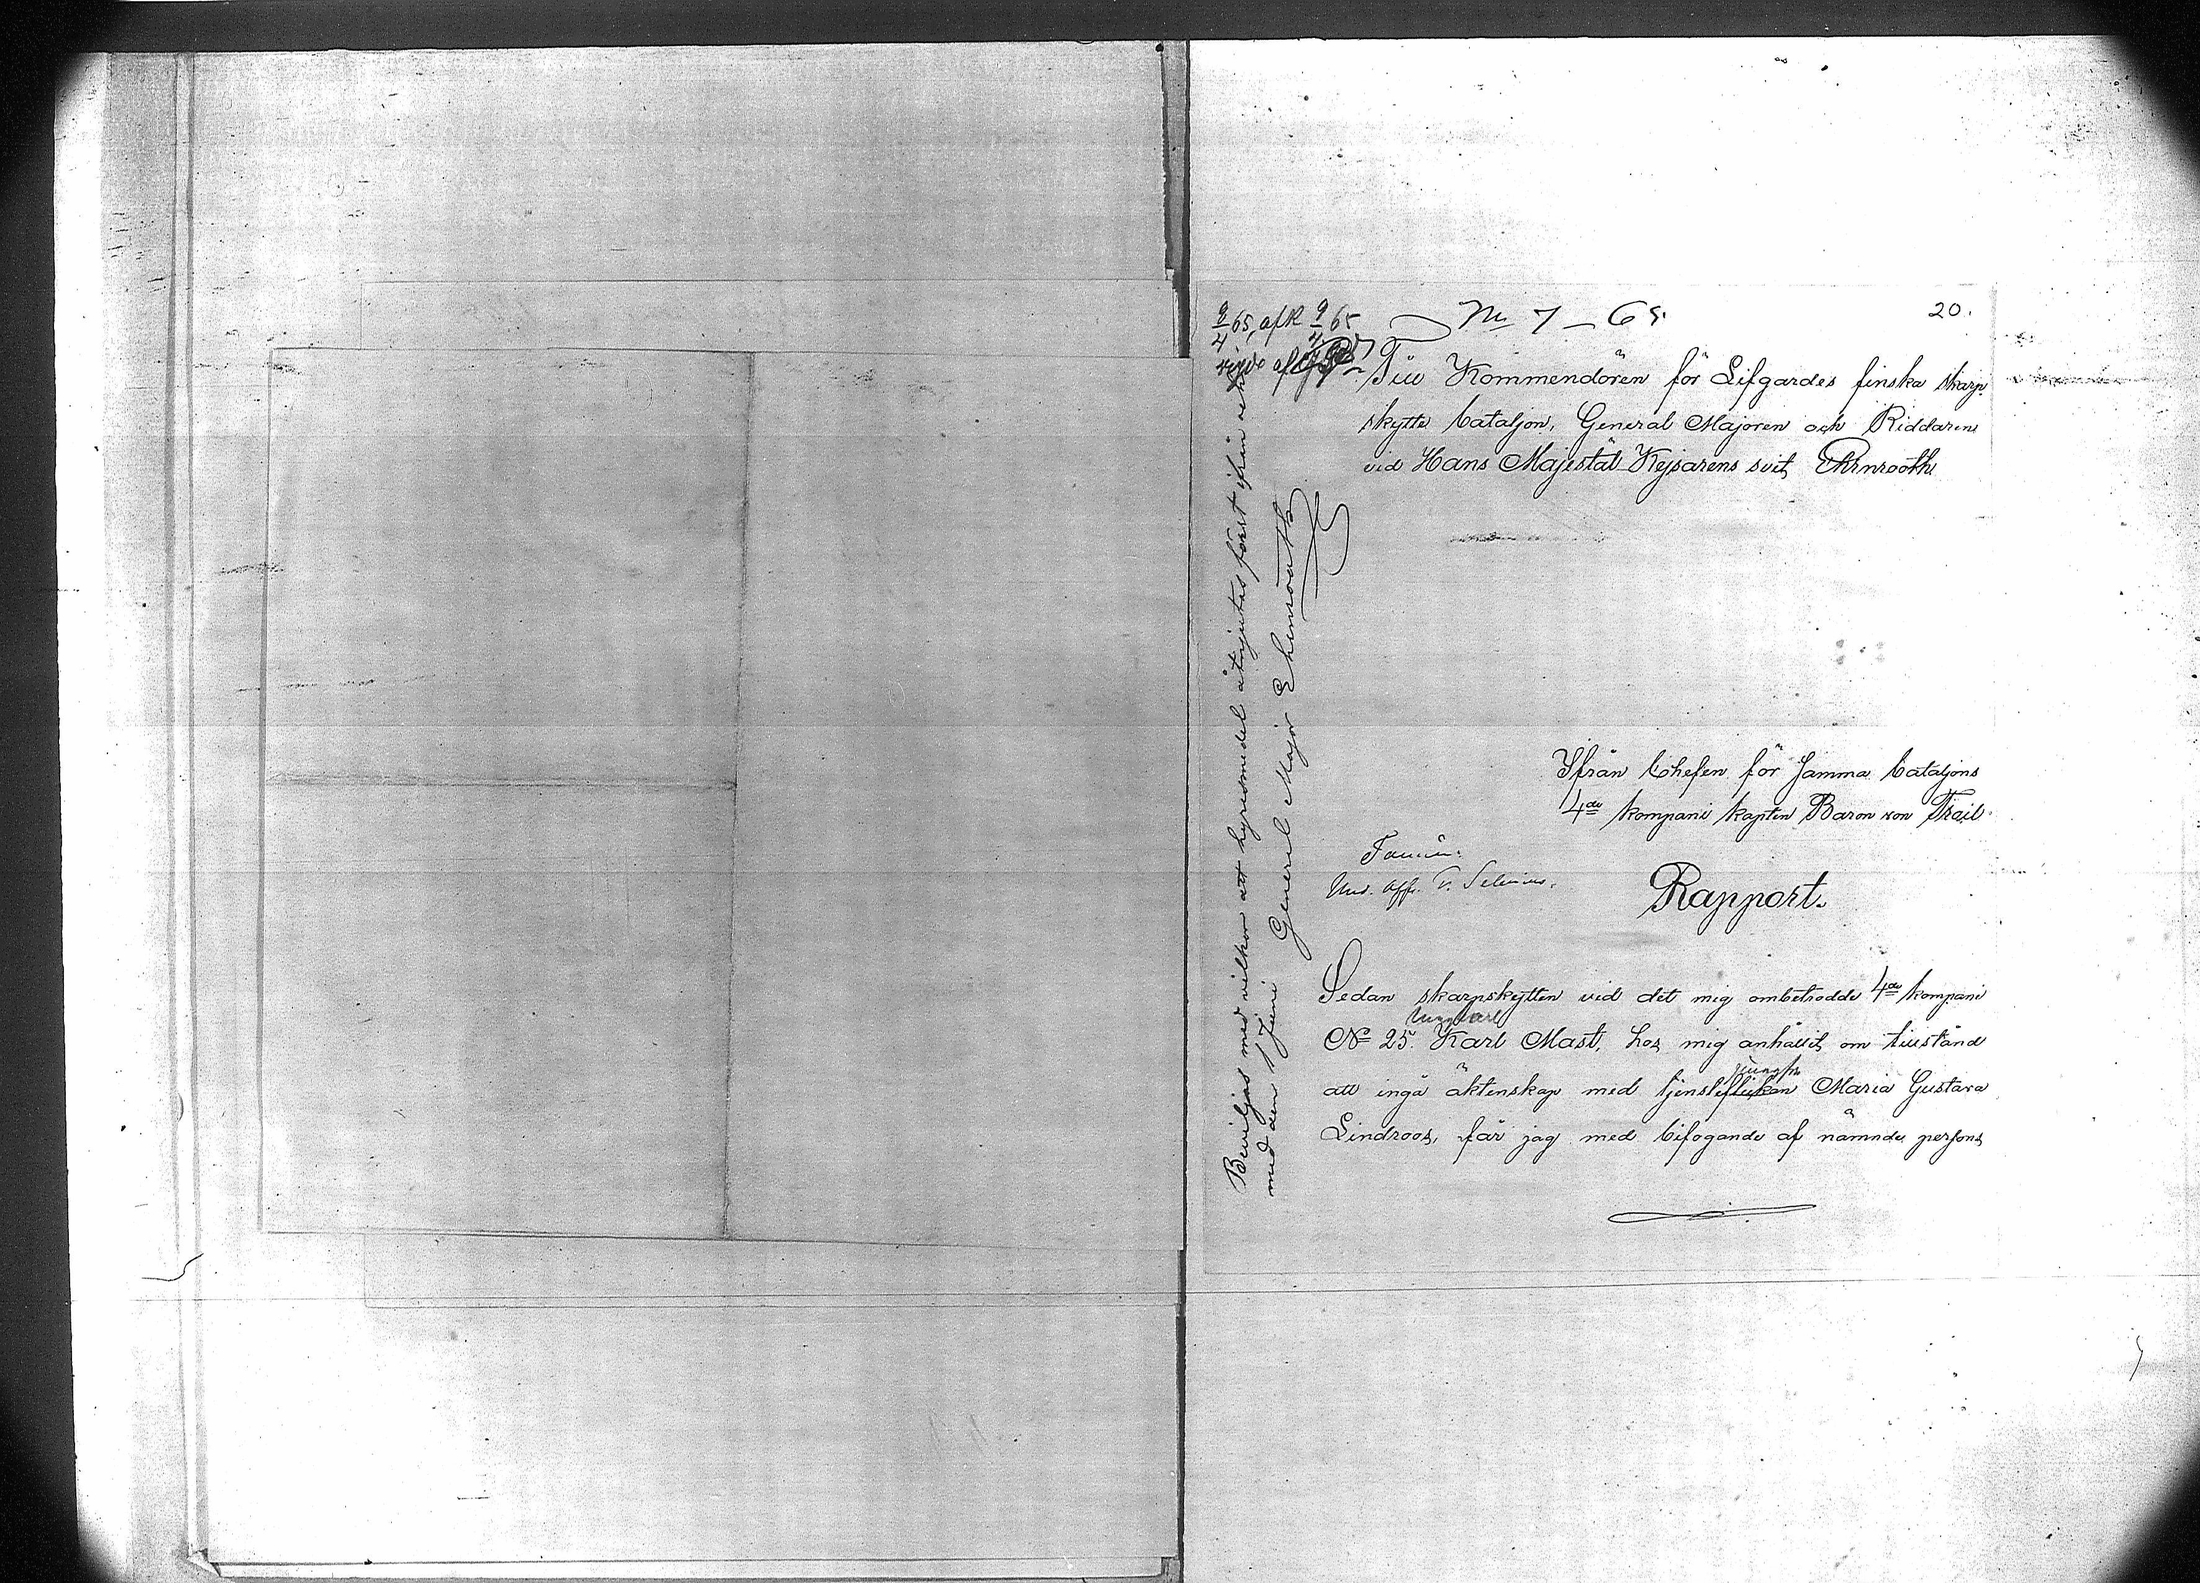 8/4 65, afk 9/4 65
No 7 – 65.
20.
Till Kommendören för Lifgardes finska skarp-
skytte bataljon, General Majoren och Riddaren
vid Hans Majestät Kejsarens svit, Ehrnrooth
Beviljas med vilkor att hyresmedel åtnjutes först ifrån och
med den 1 Juni General Major Ehrnrooth
Ifrån Chefen för samma bataljons
4de kompani kapten Baron von Troil
Und. Offr.
Rapport.
Sedan skarpskytten vid det mig ombetrodde 4de kompani
ungkarl
No 25. Karl Mast, hos mig anhållit om tillstånd
jungfr
att ingå äktenskap med tjensteflickan Maria Gustava
Lindroos, får jag med bifogande af nämnde persons